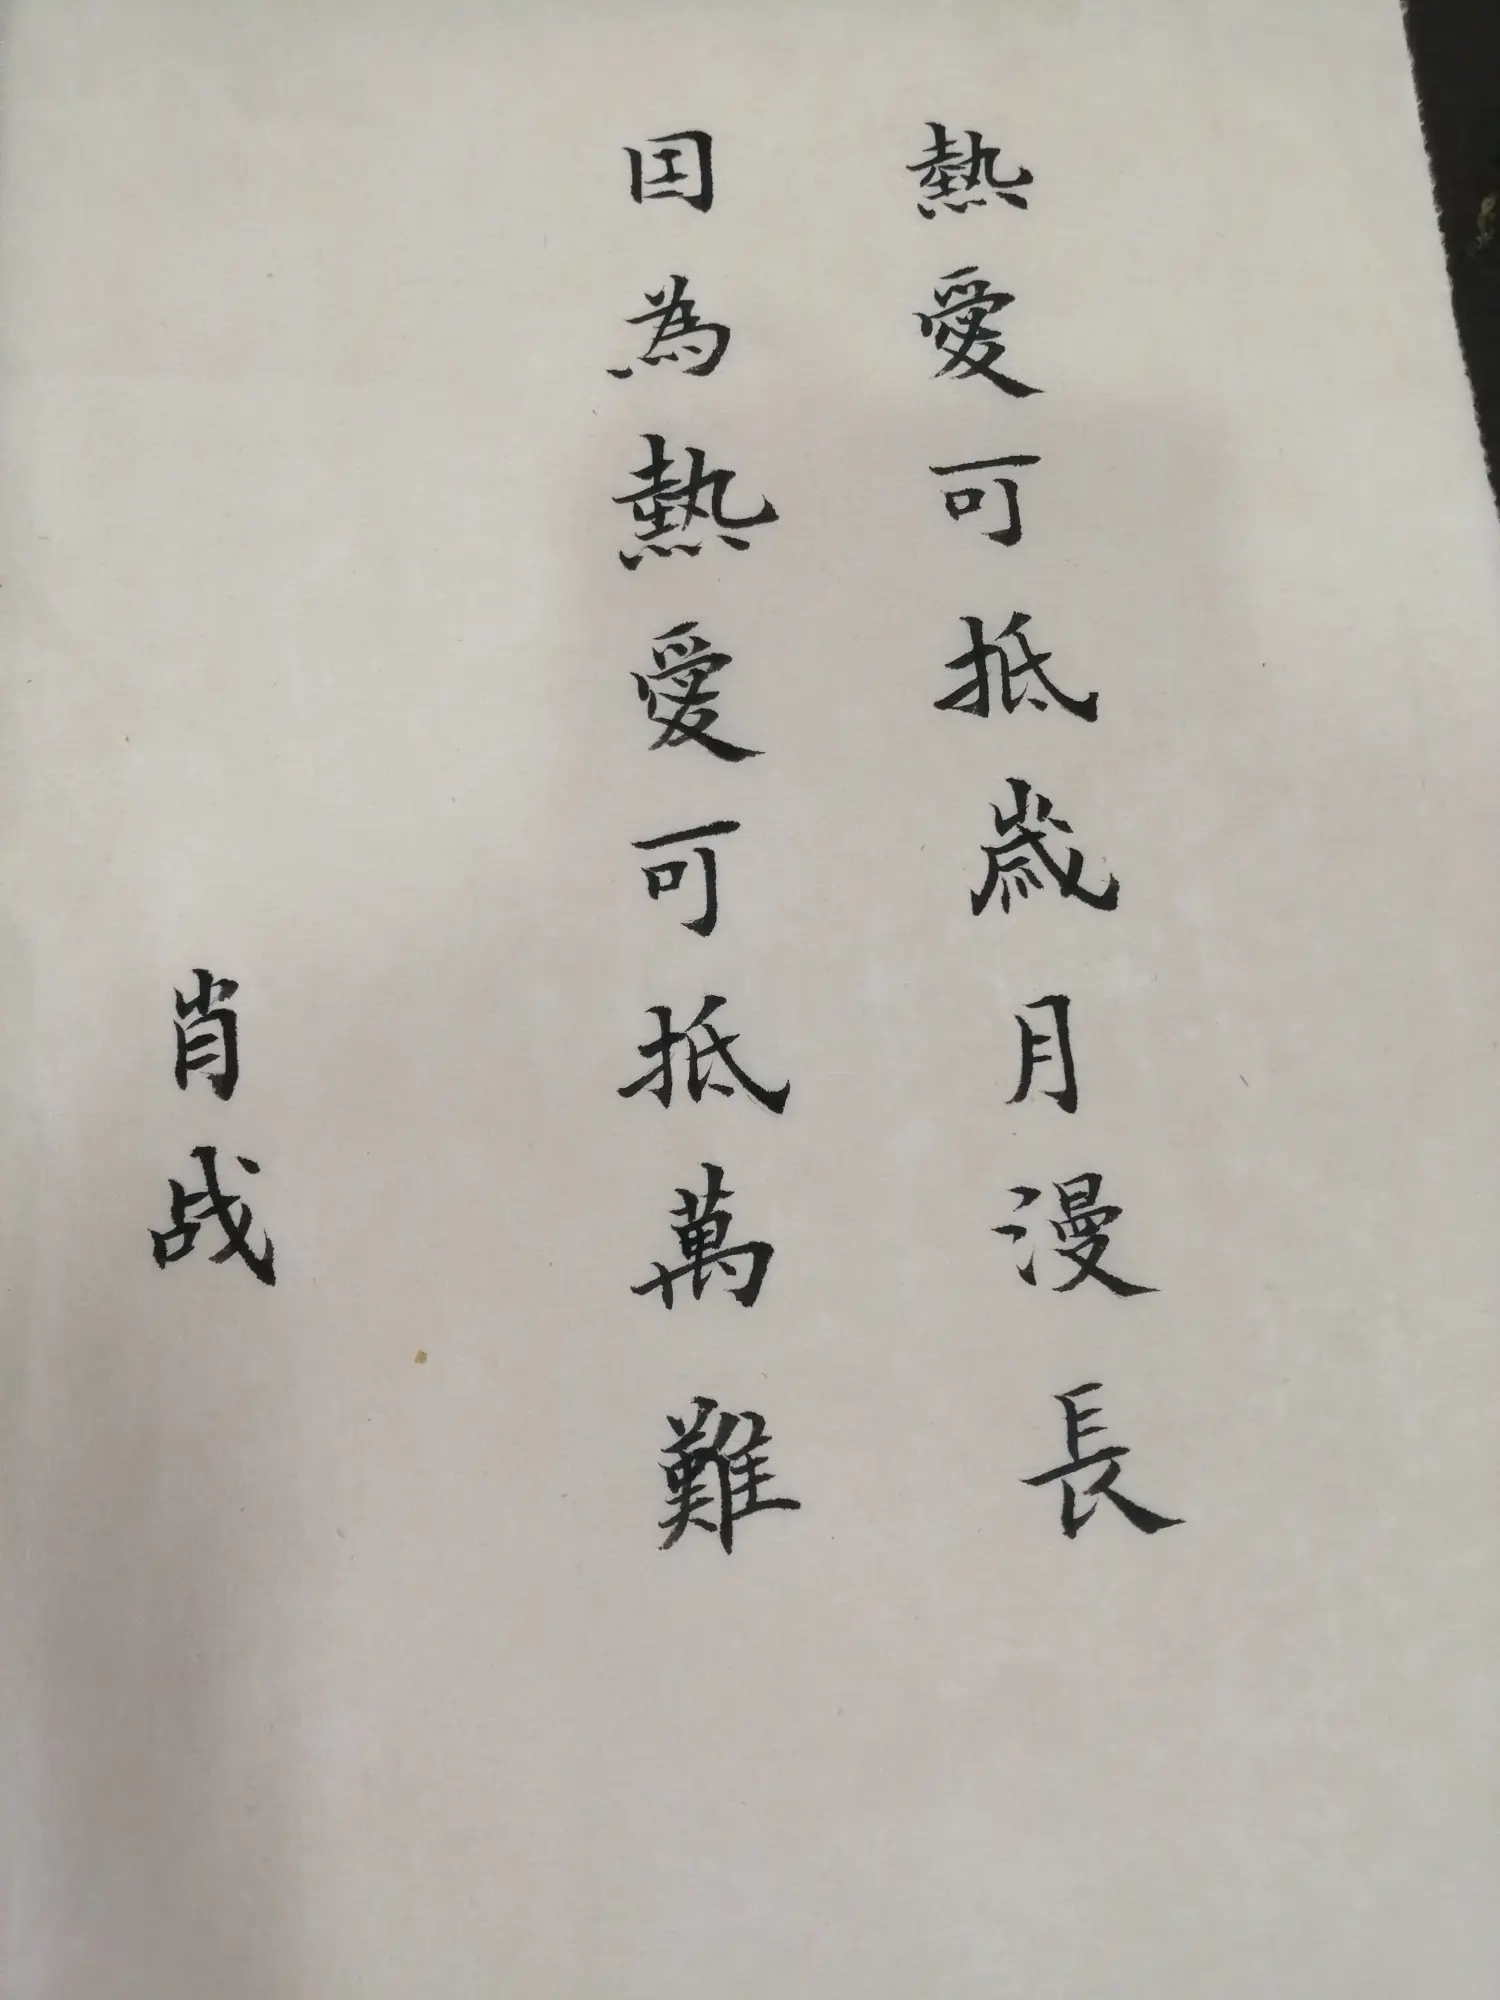 熱愛可抵歲月漫長
因為熱愛可抵萬難
肖战